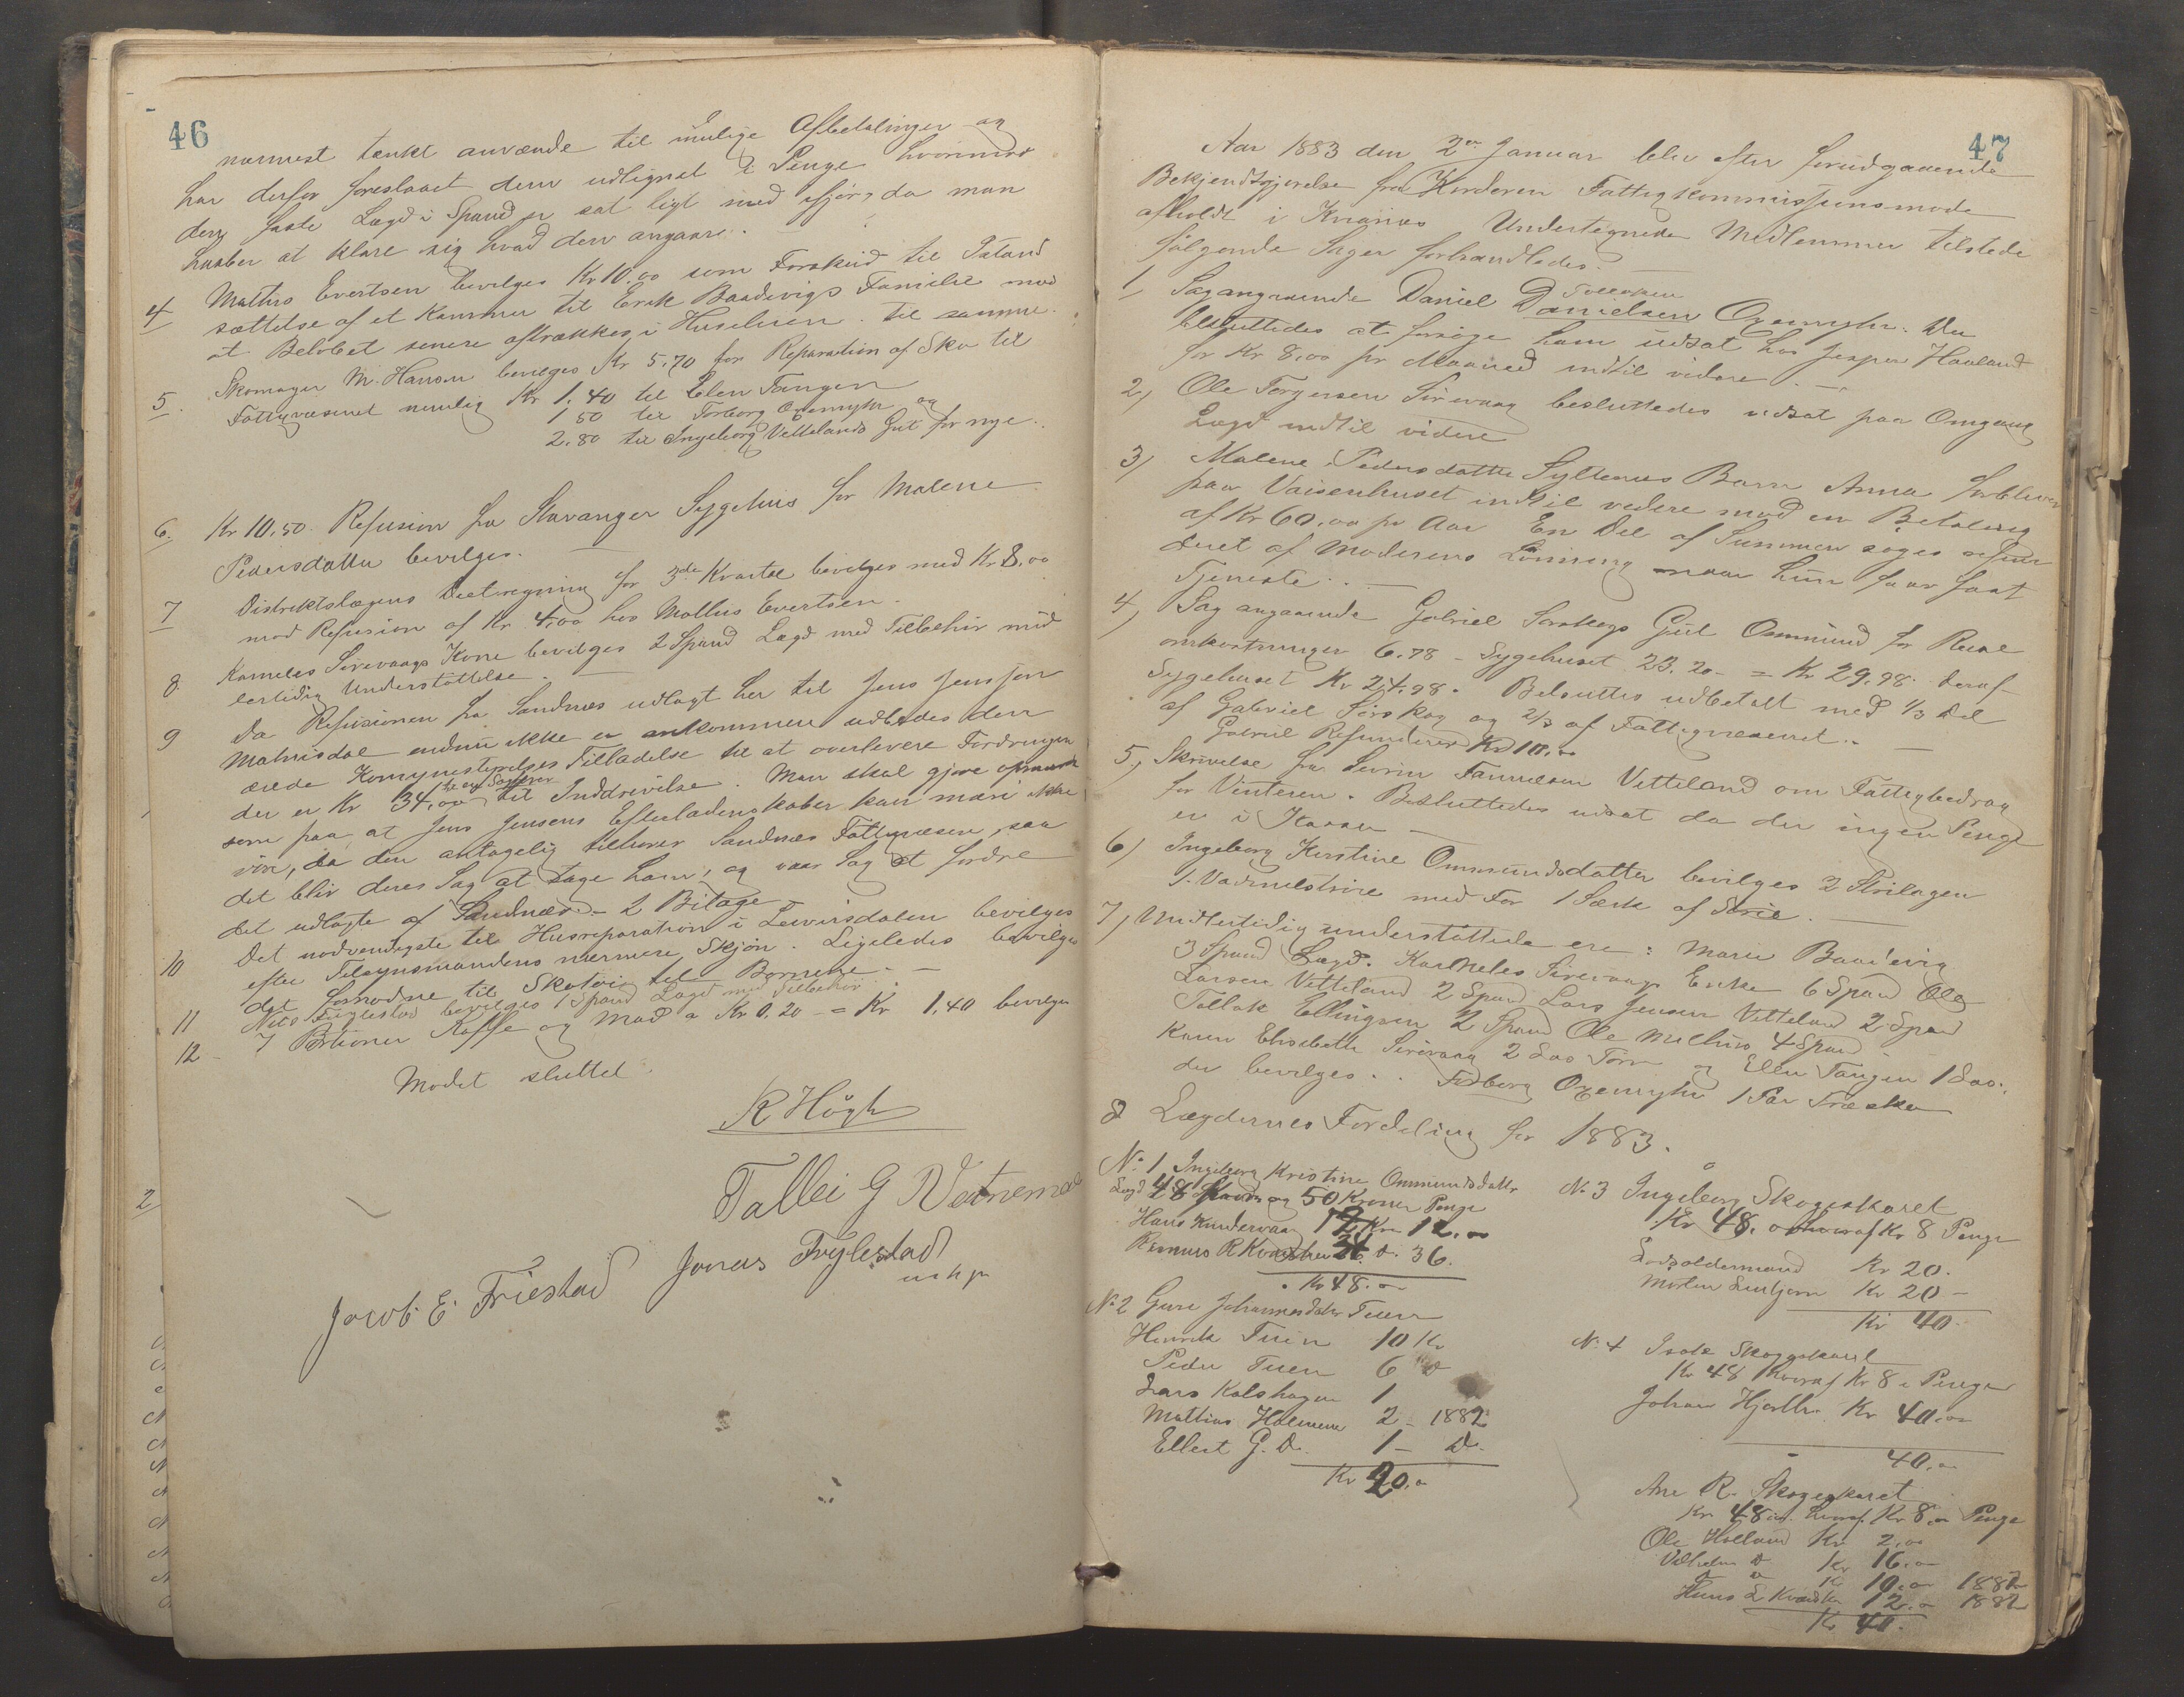 46
nærmest tænkt anvænde til mulige Afbetalinger og
har derfor foreslaaet dem udlignet i Penge hvorimod
den faste Lægd i Spand er sat ligt med ifjor, da man
haaber at klare sig hvad den angaar.
4 Mathis Evertsen bevilges Kr 10,00 som Forskud til Istand
sættelse af et Kammer til Erik Baadevigs Familie mod
at Beløbet senere aftrækkes i Huseleien til samme.
5. Skomager M. Hansen bevilges Kr 5.70 for Reparation af Sko til
Fattigvæsenet nemlig Kr 1.40 til Elen Tangen
1 50 til Torborg Oxemyhr og
2.80 til Ingeborg Vettelands Gut for nye.
6. Kr 10.50 Refusion fra Stavanger Sygehus for Malene
Pedersdatter bevilges.
7 Distriktslægens Diætregning for 3die Kvartal bevilges med Kr 8.00
mod Refusion af Kr. 4,00 hos Mathis Evertsen.
8. Kornelis Sirevaags Kone bevilges 2 Spand Lægd med Tilbehør mid
lertidig Understøttelse.
9 Da Refusionen fra Sandnæs udlagt her til Jens Jensen
Malmisdal endnu ikke er ankommen udbedes den
ærede Komunestyrelses Tilladelse til at overlevere Fordringen
der er Kr 34,00 til Inddrivelse. Man skal gjøre opmærk
som paa, at Jens Jensens Efterladenskaber kan man ikke
røre, da den antagelig tilhører Sandnæs Fattigvæsen, saa
det blir deres Sag at tage ham, og vaar Sag at fordre
det udlagte af Sandnæs – 2 Bilage
10 Det nødvendigste til Husreparation i Lewisdalen bevilges
efter Tilsynsmandens nærmere Skjøn. Ligeledes bevilges
det fornødne til Skotøi til Børnene. –
11 Nils Fuglestad bevilges 1 Spand Lægd med Tilbehør
12 – 7 Portioner Kaffe og Mad a Kr 0.20 – = Kr 1,40 bevilges
Mødet sluttet
R Høgh
Tallei G Vetnemo
Jacob E. Friestad Jonas Fuglestad
2
47
Aar 1883 den 2den Januar blev efter forudgaaende
Bekjendtgjørelse fra Kirderen Fattigkommissionsmøde
afholdt i Kvarnæs Undertegnede Medlemmer tilstede
følgende Sager forhandledes.
1 Sag angaaende Daniel D Tollaksen
Danielsen Oxemyhr. Der
besluttedes at forsøge ham udsat hos Jesper Haaland
for Kr 8,00 pr Maaned indtil videre. –
2, Ole Torgersen Sirevaag besluttedes udsat paa Omgang
Lægd indtil videre
3, Malene Pedersdatter Syltenes Barn Anna forbliver
paa Vaisenhuset indtil videre mod en Betaling
af Kr 60,00 pr Aar En Del af Summen søges refun
deret af Moderens Lønning naar hun faar fast
Tjeneste. –
4, Sag angaaende Gabriel Sørskogs Gut Ommund for Reise
omkostninger 6.78 – Sygehuset 23.20 – = Kr 29.98. deraf
Sygehuset Kr 24.98. Besluttes udbetalt med 1/3 Del
af Gabriel Sørskog og 2/3 af Fattigvæsenet. –
Gabriel Refunderer Kr 10,00
5, Skrivelse fra Sevrin Samuelsen Vetteland om Fattigbedrag
for Vinteren. Besluttedes udsat da der ingen Penge
er i Kassen
6, Ingeborg Kirstine Ommundsdatter bevilges 2 Strilagen
1 Vadmelstrøie med For 1 Særk af Strie. –
7, Midlertidig understøttede ere: Maren Baadevig
3 Spand Lægd. Karneles Sirevaags Enke 6 Spand Ole
Larsen Vetteland 2 Spand Lars Jensen Vetteland 2 Spand
Tollak Ellingsen 2 Spand Ole Melhus 4 Spand
Karen Elisabeth Sirevaag 2 Las Torv og Ellen Tangen 1 Las.
der bevilges. Torborg Oxemyhr 1 Par Træsko
8 Lægdernes Fordeling for 1883.
No 1 Ingeborg Kristine Ommundsdattr
Lægd 48 Spand og 50 Kroner Penge
Hans Kindervaag 12 Kr 12.00
Rasmus R Kvadsheim 36 d. 36.
Kr 48.00
No 2 Guri Johannesdatr Tuen
Henrik Tuen 10 Kr
Peder Tuen 6 d
Lars Kalshagen 1
Mathias Holmene 2 – 1882
Ellert G. D. 1 – d.
Kr 20,00
No 3 Ingeborg Skogeskaret
Kr 48,00 hvoraf Kr 8 Penge
Lodsoldermand Kr 20.
Morten Lentjern Kr 20 –
Kr 40
No 4 Isak Skogeskaret
Kr 48 hvoraf Kr 8 i Penge
Johan Hjelle Kr 40,00
40,00
Ane R. Skogeskaret
Kr 48,00 hvoraf Kr 8,00 Penge
Ole Hølland Kr 2,00
Vilhelm d Kr 16,00
d d K 10,00 1882
Hans L Kvadsh. 12.00 1882
Kr 40.